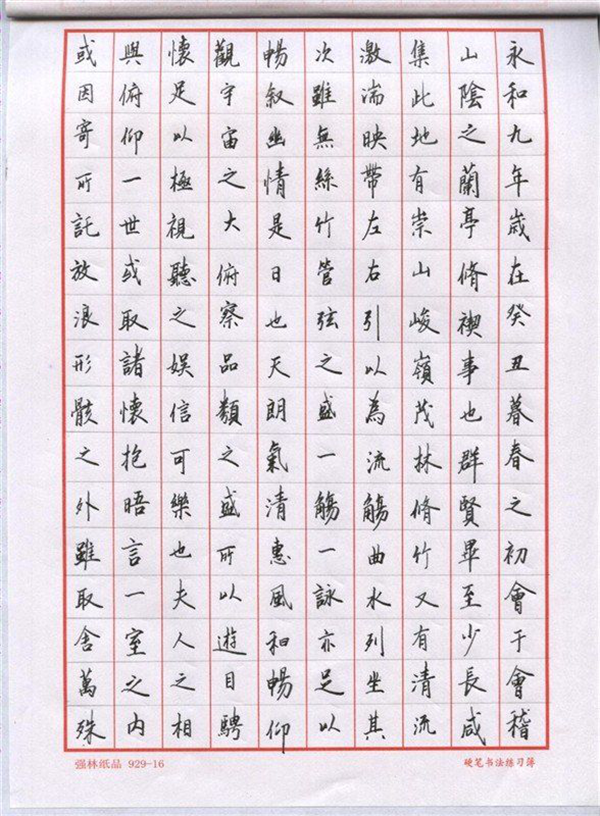 永和九年歲在癸丑暮春之初會于會稽
山陰之蘭亭脩禊事也群賢畢至少長咸
集此地有崇山峻嶺茂林脩竹又有清流
激湍映帶左右引以為流觴曲水列坐其
次雖無絲竹管弦之盛一觴一詠亦足以
暢叙幽情是日也天朗氣清惠風和暢仰
觀宇宙之大俯察品類之盛所以遊目騁
懷足以極視聽之娛信可樂也夫人之相
與俯仰一世或取諸懷抱晤言一室之內
或因寄所託放浪形骸之外雖取舍萬殊
强林纸品 929-16
硬笔书法练习簿